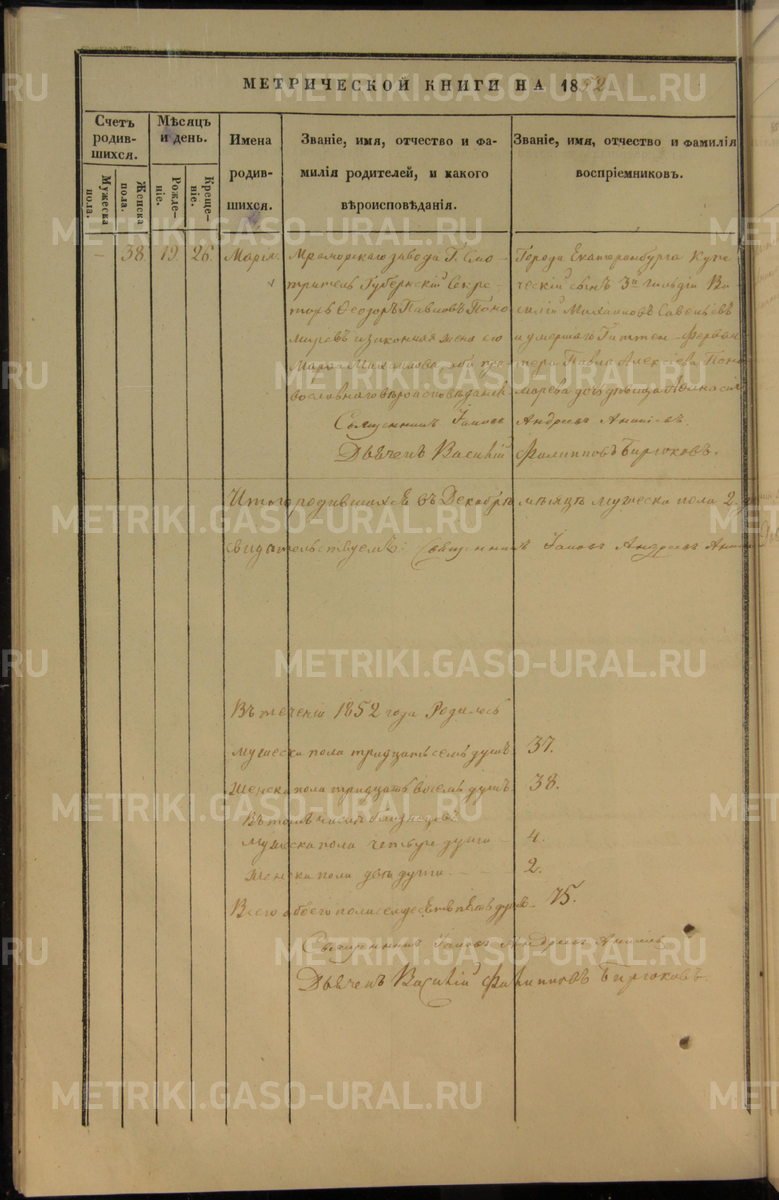 МЕТРИЧЕСКОЙ КНИГИ НА 1852
Счетъ родив-шихся.
Мужеска пола.
Женска пола.
Мѣсяцъ и день.
Рожде-ніе.
Креще-ніе.
Имена родив-шихся.
Званіе, имя, отчество и фа-
милія родителей, и какого
вѣроисповѣданія.
Званіе, имя, отчество и фамилія
воспріемниковъ.
- 38. 19. 26. Марія.
Мраморскаго завода Г. Смо-
тритель Губернскій Секре-
тарь Ѳеодоръ Павловъ Поно-
маревъ и законная жена его
Марія Михайлова, оба пра-
вославнаго вѣроисповѣданія.
Города Екатеринбурга Купе-
ческій сынъ 3й гильдіи Ва-
силій Михайловъ Савельевъ
и умершаго Гиттен-Фервал-
тера Павла Алексѣева Поно-
марева дочь дѣвица
Священникъ Іаковъ Андреевъ
Дьячекъ Василій Филипповъ Бирюковъ.
Итого родившихся въ Декабрѣ мѣсяцѣ мужеска пола 2.
свидѣтельствуемъ: Священникъ Іаковъ Андреевъ
Въ теченіи 1852 года Родилось
мужеска пола тридцать семь душъ 37.
Женска пола тридцать восемь душъ 38.
Въ томъ числѣ близнецовъ
Мужеска пола четыре души - 4.
Женска пола двѣ души - 2.
Всего обоего пола семдесятъ пять душъ. 75.
Священникъ Іаковъ Андреевъ
Дьячекъ Василій Филипповъ Бирюковъ.
METRIKI.GASO-URAL.RU